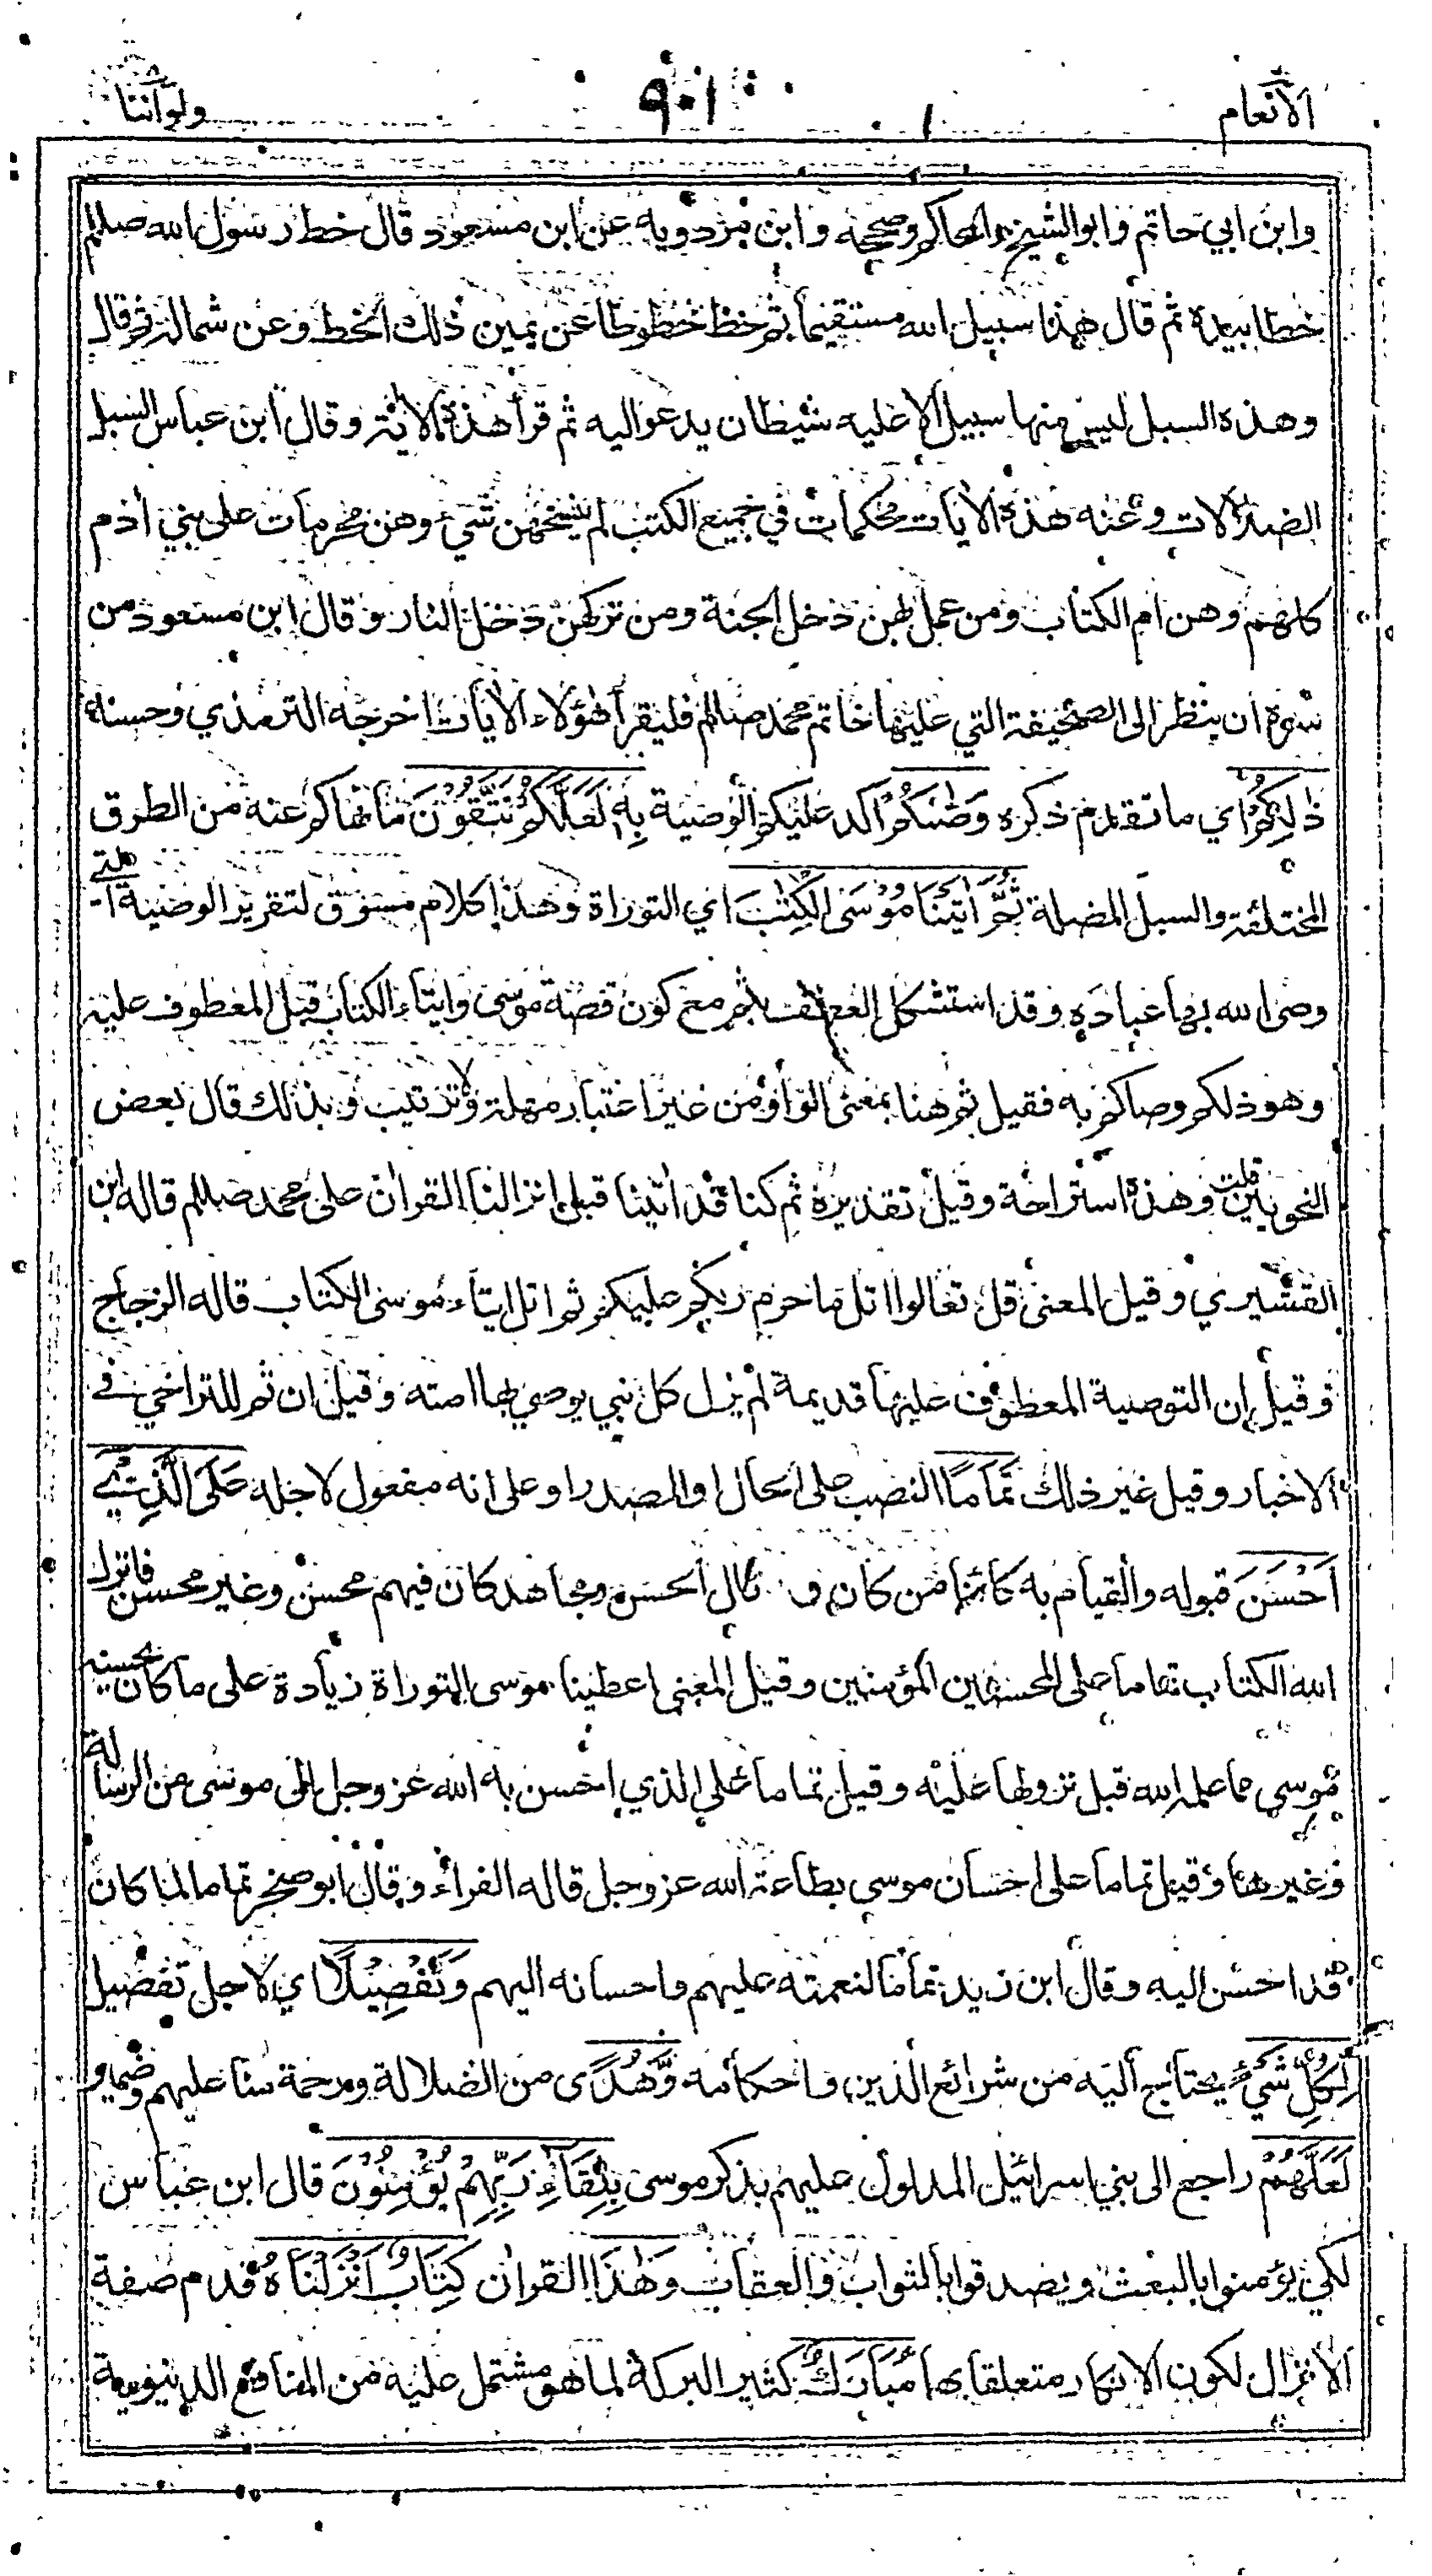 الانعام
٩٠١
ولواننا
وابن ابي حاتم وابو الشيخ والحاكم وصححه وابن مردويه عن ابن مسعود قال خط رسول الله صللم
خطا بيده ثم قال هذا سبيل الله مستقيما ثم خط خطوطا عن يمين ذلك الخط وعن شماله ثم قال
وهذه السبل ليس منها سبيل الا عليه شيطان يدعو اليه ثم قرأ هذه الاية وقال ابن عباس السبل
الضلالات وعنه هذه الايات محكمات في جميع الكتب لم ينسخهن شيء وهن محرمات على بني ادم
كلهم وهن ام الكتاب ومن عمل بهن دخل الجنة ومن تركهن دخل النار وقال ابن مسعود من
سره ان ينظر الى الصحيفة التي عليها خاتم محمد صللم فليقرأ هؤلاء الايات اخرجه الترمذي وحسنه
ذٰلِكُمْ اي ما تقدم ذكره وَصّٰىكُمْ اكد عليكم الوصية بِهٖ لَعَلَّكُمْ تَتَّقُوْنَ ما نهاكم عنه من الطرق
المختلفة والسبل المضلة ثُمَّ اٰتَيْنَا مُوْسَى الْكِتٰبَ اي التوراة وهذا كلام مسوق لتقرير الوصية التي
وصى الله بها عباده وقد استشكل العطف بثم مع كون قصة موسى وايتاء الكتاب قبل المعطوف عليه
وهو ذلكم وصاكم به فقيل ثم هنا بمعنى الواو من غير اعتبار مهلة ولا ترتيب وبذلك قال بعض
النحويين قلت وهذه استراحة وقيل تقديره ثم كنا قد اتينا قبل انزالنا القران على محمد صللم قاله ابن
القشيري وقيل المعنى قل تعالوا اتل ما حرم ربكم عليكم ثم اتل ايتاء موسى الكتاب قاله الزجاج
وقيل ان التوصية المعطوف عليها قديمة لم يزل كل نبي يوصي بها امته وقيل ان ثم للتراخي في
الاخبار وقيل غير ذلك تَمَامًا النصب على الحال او المصدر او على انه مفعول لاجله عَلَى الَّذِيْ
اَحْسَنَ قبوله والقيام به كائنا من كان و قال الحسن ومجاهد كان فيهم محسن وغير محسن فانزل
الله الكتاب تماما على المحسنين المؤمنين وقيل المعنى اعطينا موسى التوراة زيادة على ما كان يحسنه
موسى مما علمه الله قبل نزولها عليه وقيل تماما على الذي احسن به الله عز وجل الى موسى من الرسالة
وغيرها وقيل تماما على احسان موسى بطاعة الله عز وجل قاله الفراء وقال ابو صخر تماما لما كان
قد احسن اليه وقال ابن زيد تماما لنعمته عليهم واحسانه اليهم وَتَفْصِيْلًا اي لاجل تفصيل
لِكُلِّ شَيْءٍ يحتاج اليه من شرائع الدين واحكامه وَّهُدًى من الضلالة ورحمة منا عليهم وضمير
لَعَلَّهُمْ راجع الى بني اسرائيل المدلول عليهم بذكر موسى بِلِقَاءِ رَبِّهِمْ يُؤْمِنُوْنَ قال ابن عباس
لكي يؤمنوا بالبعث ويصدقوا بالثواب والعقاب وَهٰذَا القران كِتَابٌ اَنْزَلْنَاهُ قدم صفة
الانزال لكون الانكار متعلقا بها مُبَارَكٌ كثير البركة لما هو مشتمل عليه من المنافع الدنيوية